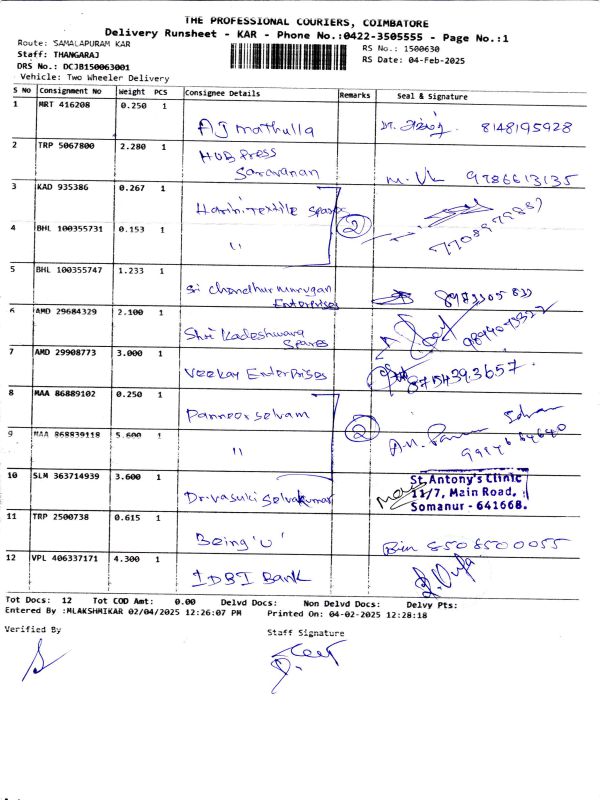 THE PROFESSIONAL COURIERS, COIMBATORE
Delivery Runsheet - KAR - Phone No.:0422-3505555 - Page No.:1
Route: SAMALAPURAM KAR
RS No.: 1500630
Staff: THANGARAJ
RS Date: 04-Feb-2025
DRS No.: DCJB150063001
Vehicle: Two Wheeler Delivery
S No Consignment No Weight PCS Consignee Details Remarks Seal & Signature
1 MRT 416208 0.250 1
AJ Mathulla 8148195928
2 TRP 5067800 2.280 1 HUB Press
Saravanan 9786613135
3 KAD 935386 0.267 1
Harini Textile Spares 2
4 BHL 100355731 0.153 1
"
5 BHL 100355747 1.233 1
Sri Chandhurmurugan
Enterprises
6 AMD 29684329 2.100 1
Shri Kadeshwara
Spares
7 AMD 29908773 3.000 1
Veekay Enterprises 8754393657
8 MAA 86889102 0.250 1
Panneerselvam 2
9 MAA 868839118 5.600 1
"
10 SLM 363714939 3.600 1
Dr.Vasuki Selvakumar
St. Antony's Clinic
11/7, Main Road,
Somanur - 641668.
11 TRP 2500738 0.615 1
Being 'U' 8508500055
12 VPL 406337171 4.300 1
IDBI Bank
Tot Docs: 12 Tot COD Amt: 0.00 Delvd Docs: Non Delvd Docs: Delvy Pts:
Entered By :MLAKSHMIKAR 02/04/2025 12:26:07 PM Printed On: 04-02-2025 12:28:18
Verified By
Staff Signature